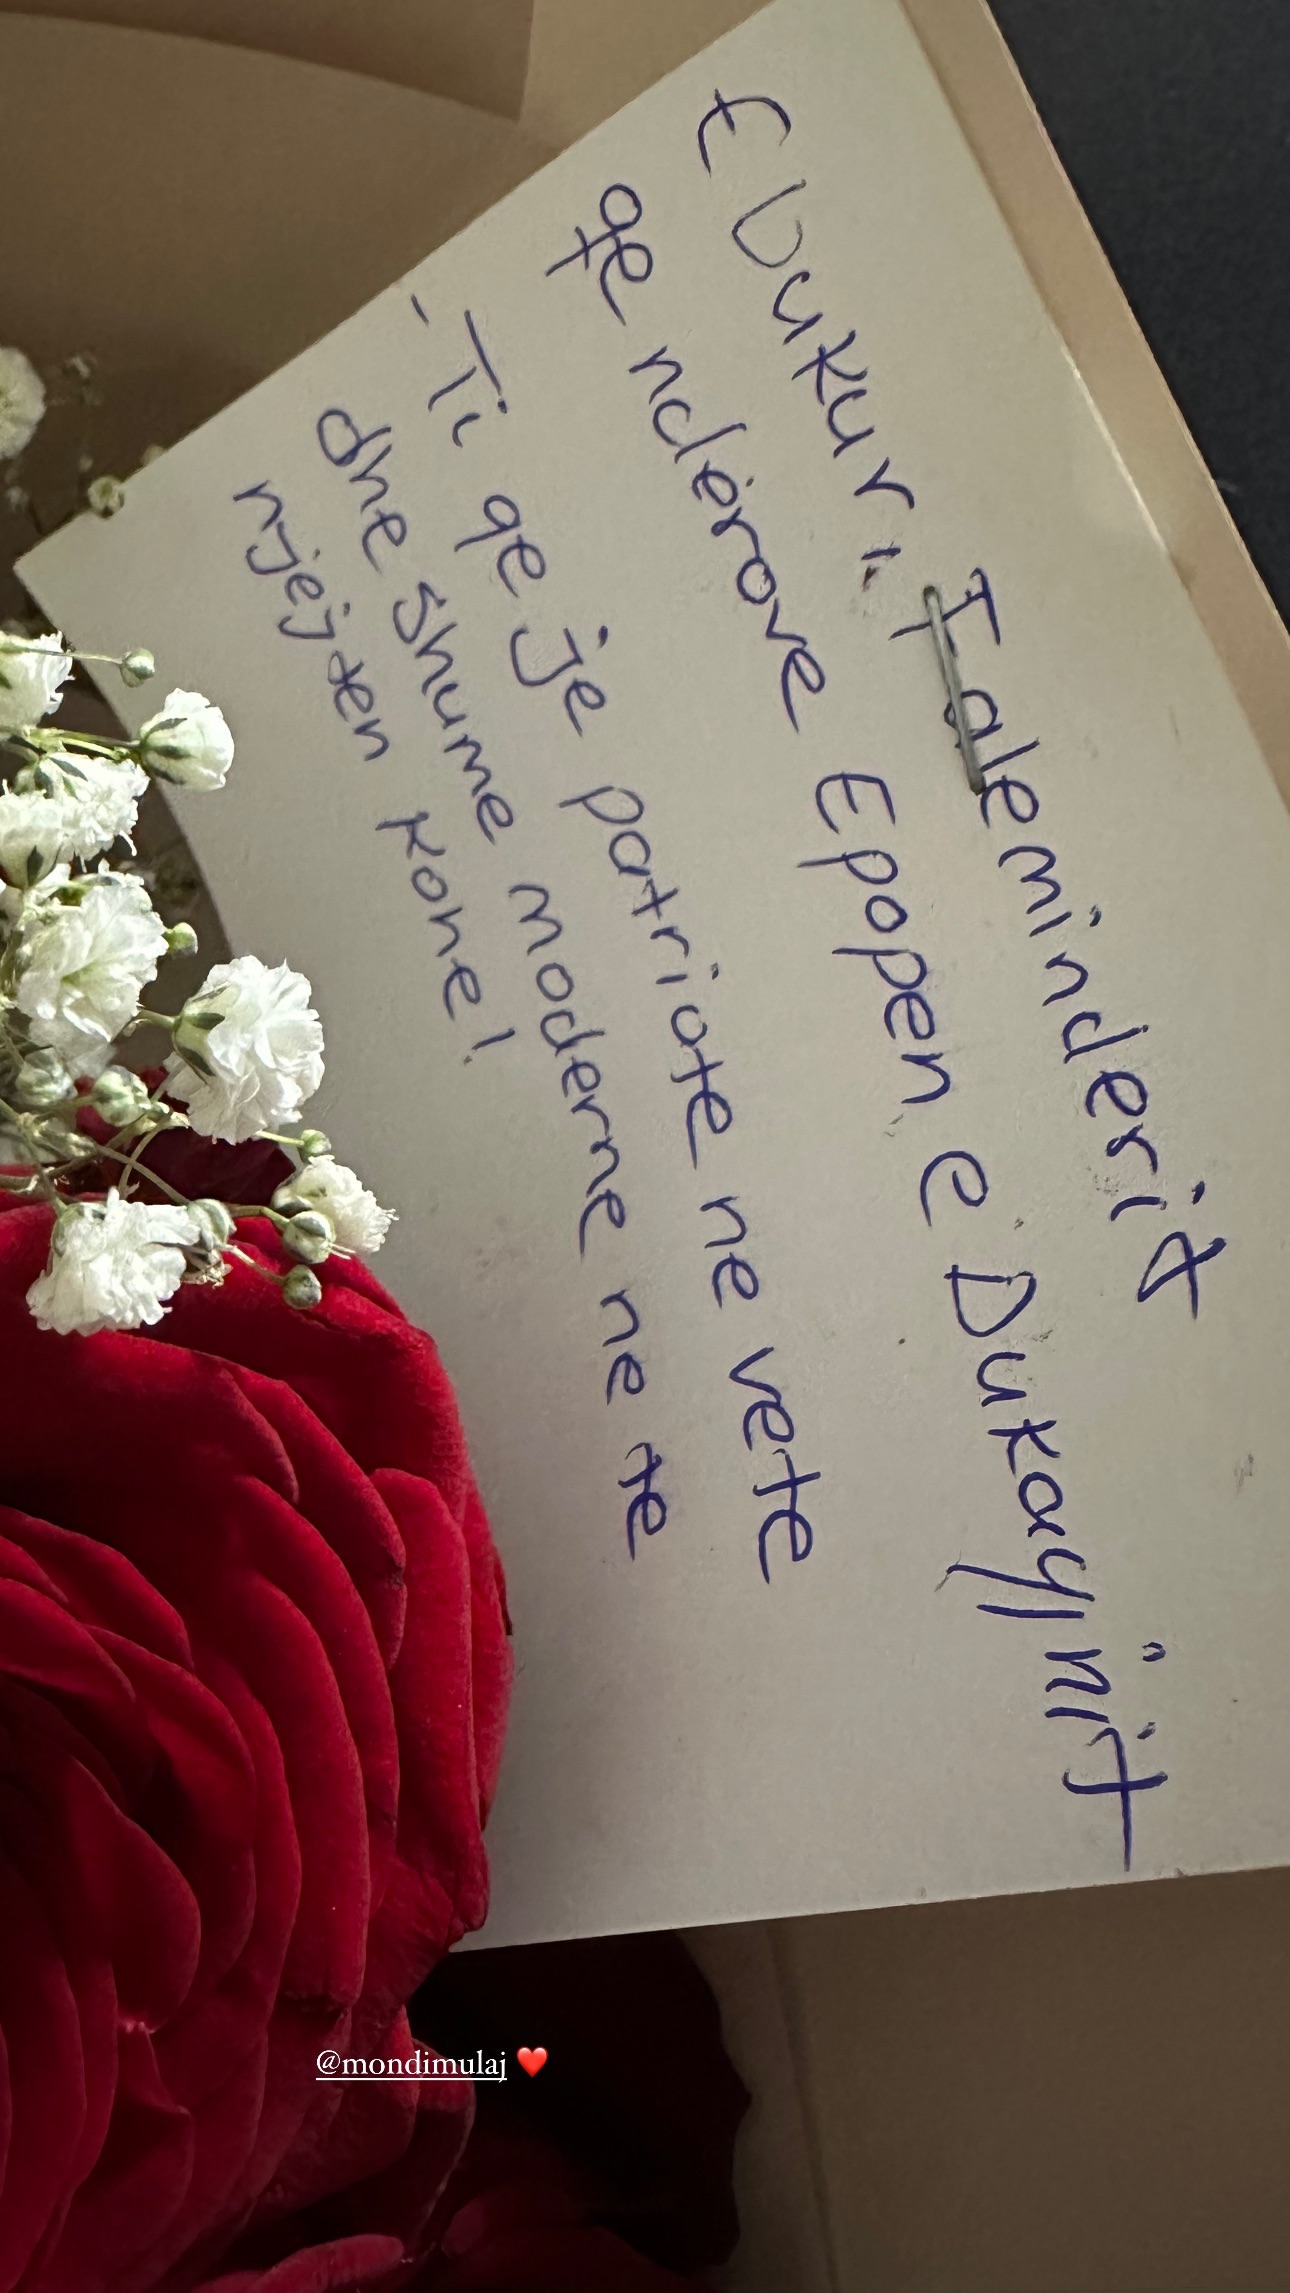 E bukur, Faleminderit
qe nderove Epopen e Dukagjinit
-Ti qe je patriote ne vete
dhe shume moderne ne te
njejten kohe!
@mondimulaj ❤️